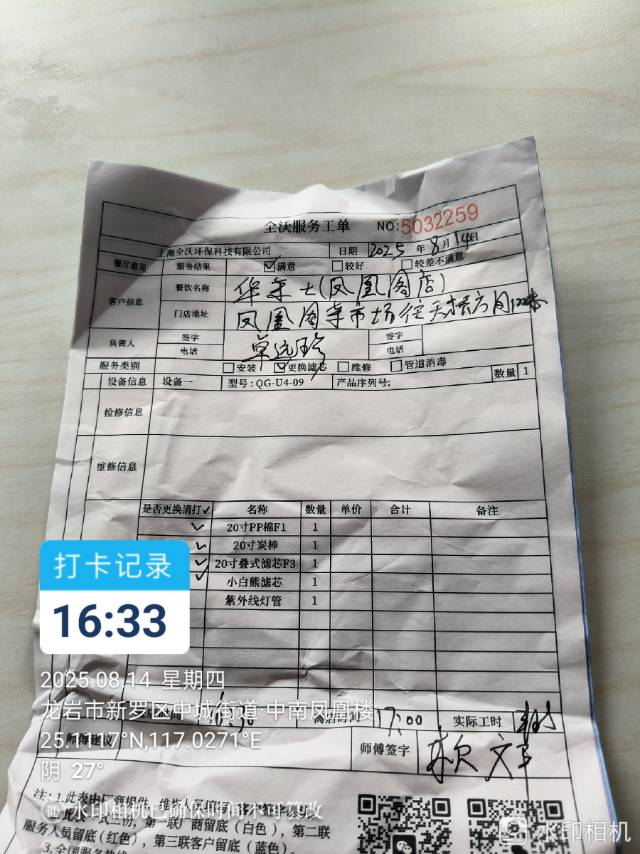 全沃服务工单 NO:5032259
上海全沃环保科技有限公司 日期 2025年8月14日
餐厅意见 服务结果 ☑满意 □较好 □较差不满意
客户信息 餐饮名称 华莱士(凤凰阁店)
门店地址 凤凰阁
负责人 签字 签字
电话 电话
服务类别 □安装 ☑更换滤芯 □维修 □管道消毒
设备信息 设备一 型号:QG-U4-09 产品序列号: 数量 1
检修信息
维修信息
是否更换请打✓ 名称 数量 单价 合计 备注
✓ 20寸PP棉F1 1
✓ 20寸炭棒 1
✓ 20寸叠式滤芯F3 1
✓ 小白熊滤芯 1
紫外线灯管 1
打卡记录
16:33
2025.08.14 星期四
龙岩市新罗区中城街道·中南凤凰楼
N,117.0271°E
阴 27°
离店时间 17:00 实际工时
师傅建议 师傅签字
注:1.此表由厂商提供
水印相机已确保时间不可篡改
第一联厂商留底(白色),第二联
服务人员留底(红色),第三联客户留底(蓝色)。
3.全国服务热线
水印相机